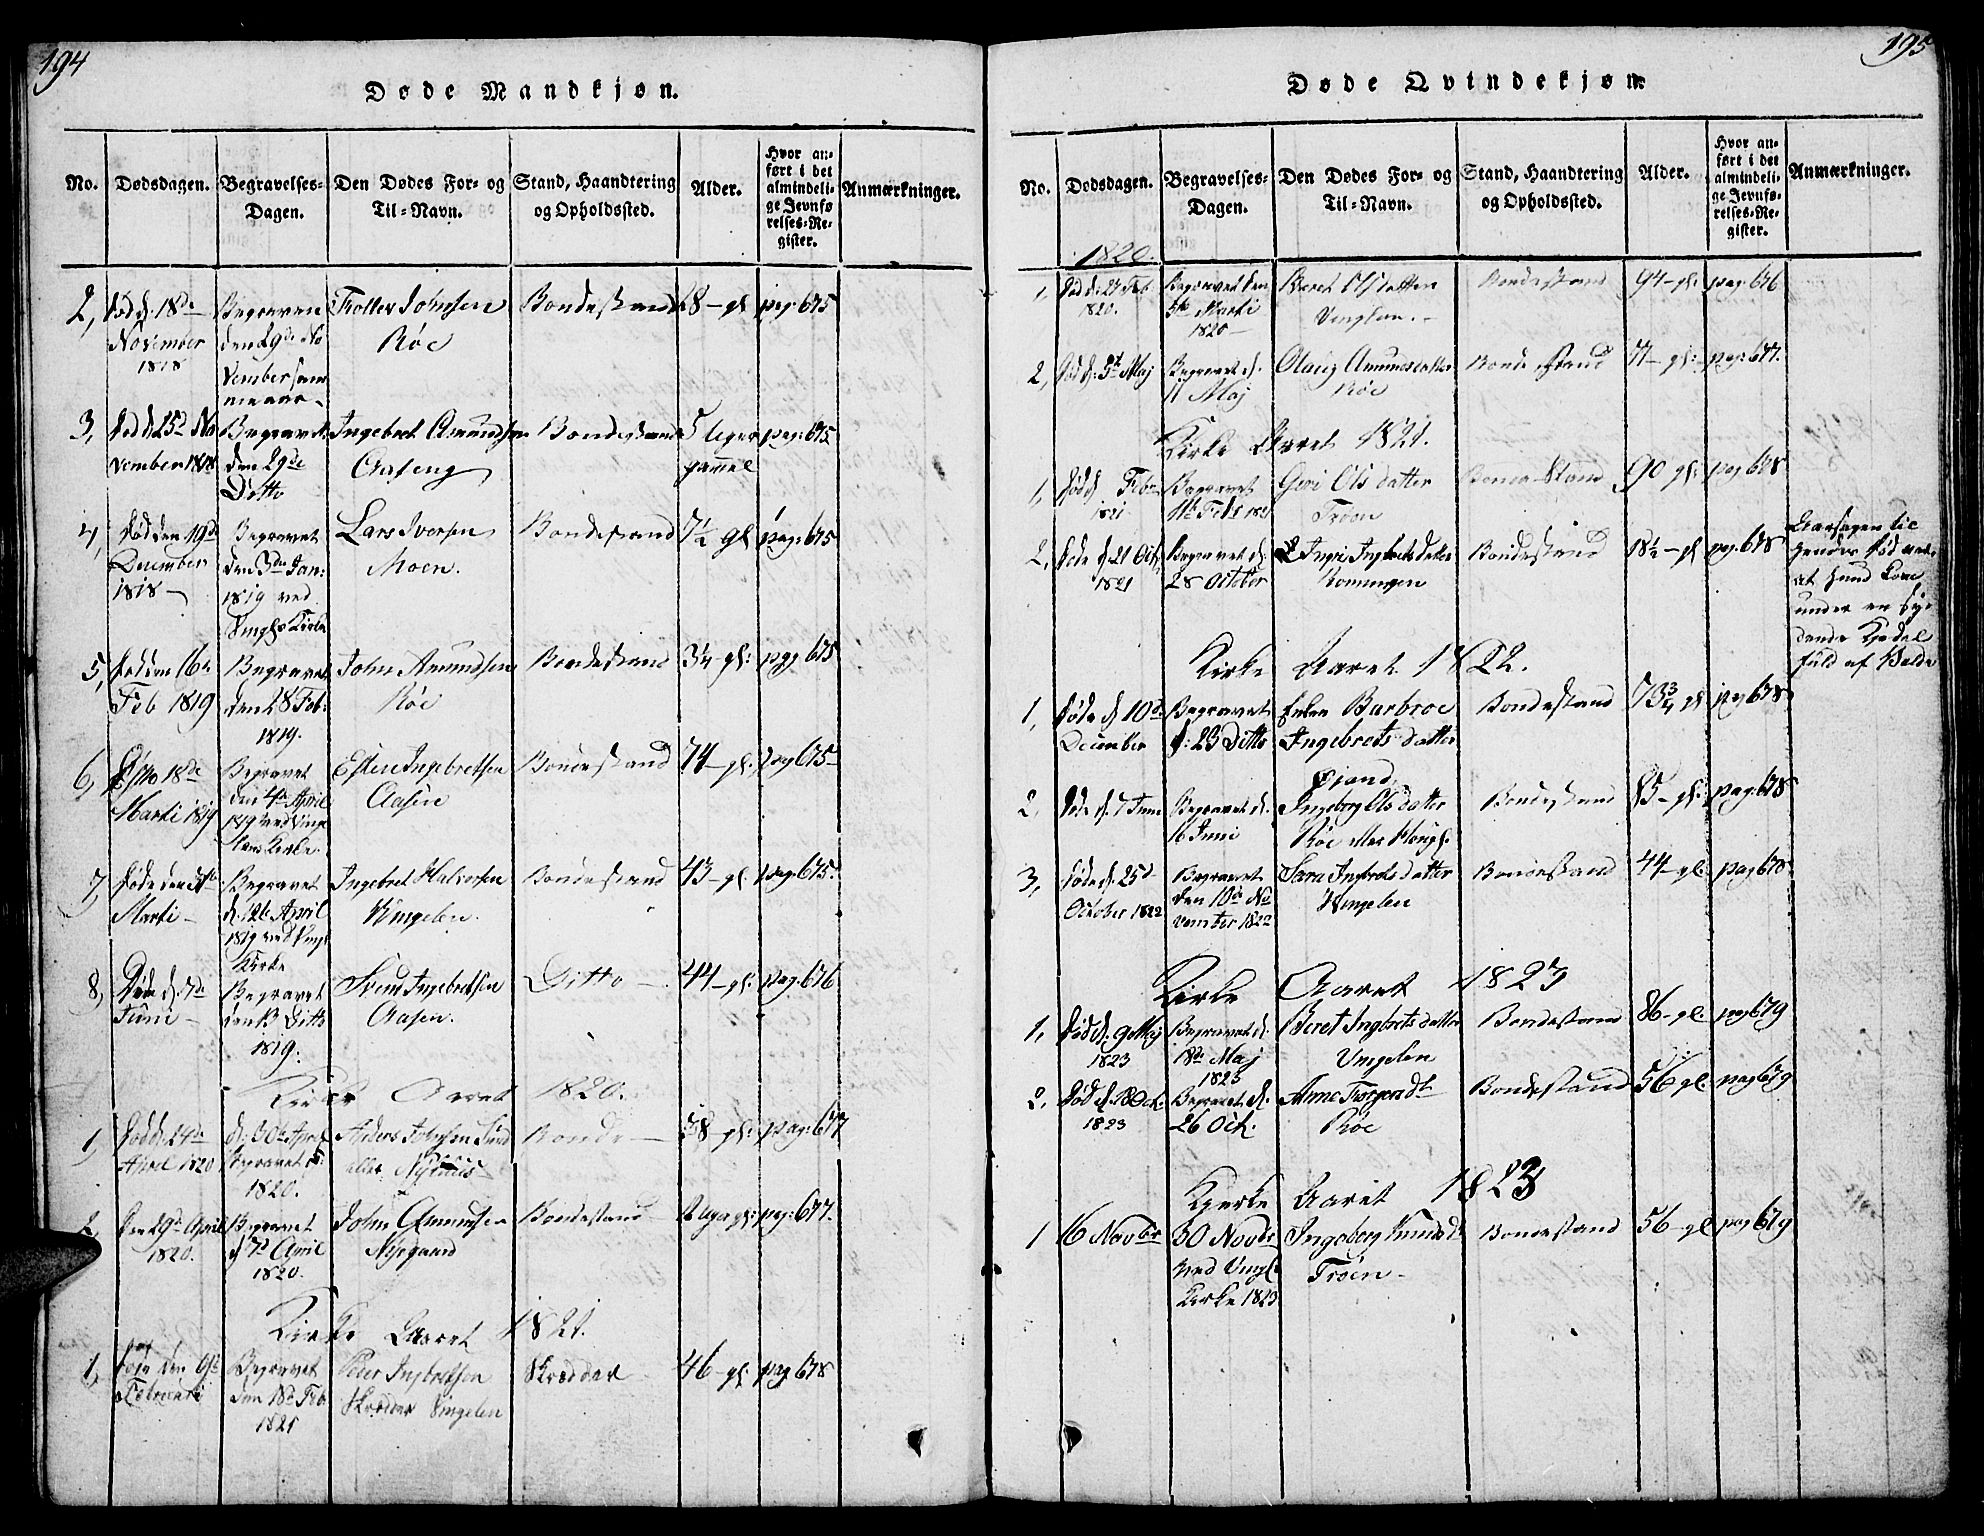 194
Døde Mandkjøn.
No.
Dødsdagen.
Begravelses-
Dagen.
Den Dødes For- og
Til-Navn.
Stand, Haandtering
og Opholdssted.
Alder.
Hvor an-
ført i det
almindeli-
ge Jevnfø
relses-Re-
gister.
Anmærkninger.
2, død d. 18de
November
1818
Begraven
den 29de No
vember sam
me aar
Tollev Johnsen
Røe
Bondestand
68 - gl pag: 675
3, død d 25d No
vember 1818
Begravet
den 29de
Ditto
Ingebret Amundsen
Aaseng
Bondestand
5 Uger
gammel
pag: 675
4, død den 19d
December
1818 -
Begravet
den 3die Jan:
1819 ved
Vingls Kirke
Lars Iversen
Moen.
Bondestand
7½ gl pag: 675
5, død den 16de
Feb 1819
Begravet
den 28 Feb:
1819.
John Amundsen
Røe
Bondestand
3/4 - gl: pag 675
6, 18de
Martii 1819
Begravet
den 4de April
1819 ved Vinge
lens Kirke.
Esten Ingebretsen
Aasen
Bondestand
74 - gl: pag 675
7, døde den
Martii -
Begravet
d. 12te April
1819 ved Vingl
Kirke
Ingebret Halvorsen
Vingelen.
Bondestand
43 - gl. pag. 675.
8, Døde d. 7de
Junii -
Begravet
den 13 Ditto
1819.
Svend Ingebretsen
Aasen.
Ditto -
44 - gl: pag. 676
Kirke Aaret 1820.
1, død d: 24de
April 1820
d: 30te April
Begravet
1820.
Anders Johnsen
eller
Bonde -
58 - gl: pag: 677
2, den 29de April
1820.
Begravet
d 7d April
1820.
John Amundsen
Nygaard
Bondestand
pag: 677.
Kirke Aaret 1821.
1, døde den 9de
Februarii
Begravet
den 18de Feb
1821
Peder Ingbretsen
Skrædder Vingelen
Skrædder
46 - gl: pag 678
195
Døde Qvindekjøn.
No.
Dødsdagen.
Begravelses-
Dagen.
Den Dødes For- og
Til-Navn.
Stand, Haandtering
og Opholdssted.
Alder.
Hvor an-
ført i det
almindeli-
ge Jevnfø-
relses-Re-
gister.
Anmærkninger.
1820.
1, død d: 27 Feb
1820.
Begravet den
5te Martii
1820 -
Beret Olsdatter
Vinglen. -
Bondestand
94 - gl: pag 676
2, død d: 5t Maj
Begravet d.
11 Maj
Olaug Amundsdatter
Røe
Bondestand
77 - gl: pag: 677.
Kirke Aaret 1821.
1, død d Febr
1821
Begravet
11te Feb: 1821
Guri Olsdatter
Trøen
Bonde Stand
90 gl: pag 678
2, døde d. 21 Octb
1821
Begravet d.
28 October
Ingri Ingbretsdatter
Bondestand
18½ - gl pag. 678
Aarsagen til
hendes død var
at hund kom
under en sy
dende Kjedel
fuld af
Kirke Aaret 1822.
1, døde d 10de
December
Begravet
d: 23 Ditto
Enken Barbroe
Ingebrets datter
Bondestand
73¾ gl pag 678
2. døde d. 7 Junii
Begravet d.
16 Junii
Ingeborg Olsdatter
Røe eller
Bondestand
85 - gl: pag: 678
3, døde d. 25d
October 1822
Begravet
den 10de No
vember 1822
Sara Ingbretsdatter
Vingelen
Bondestand
44 - gl: pag 678
Kirke Aaret 1823
1, død d. 9 Maj
1823
Begravet d.
18de Maj
1823
Beret Ingbretsdatter
Vingelen
Bondestand
86 - gl. pag 679
2, død d. 18 Octb.
1823
Begravet d.
26 Octb.
Anne Torgersdt
Røe
Bondestand
56 - gl. pag 679
Kjerke Aaret 1823
1 16 Novbr
30 Novbr
ved Vingl:
Kirke 1823
Ingeborg Knudsdt
Trøen -
Bondestand
56 - gl pag 679